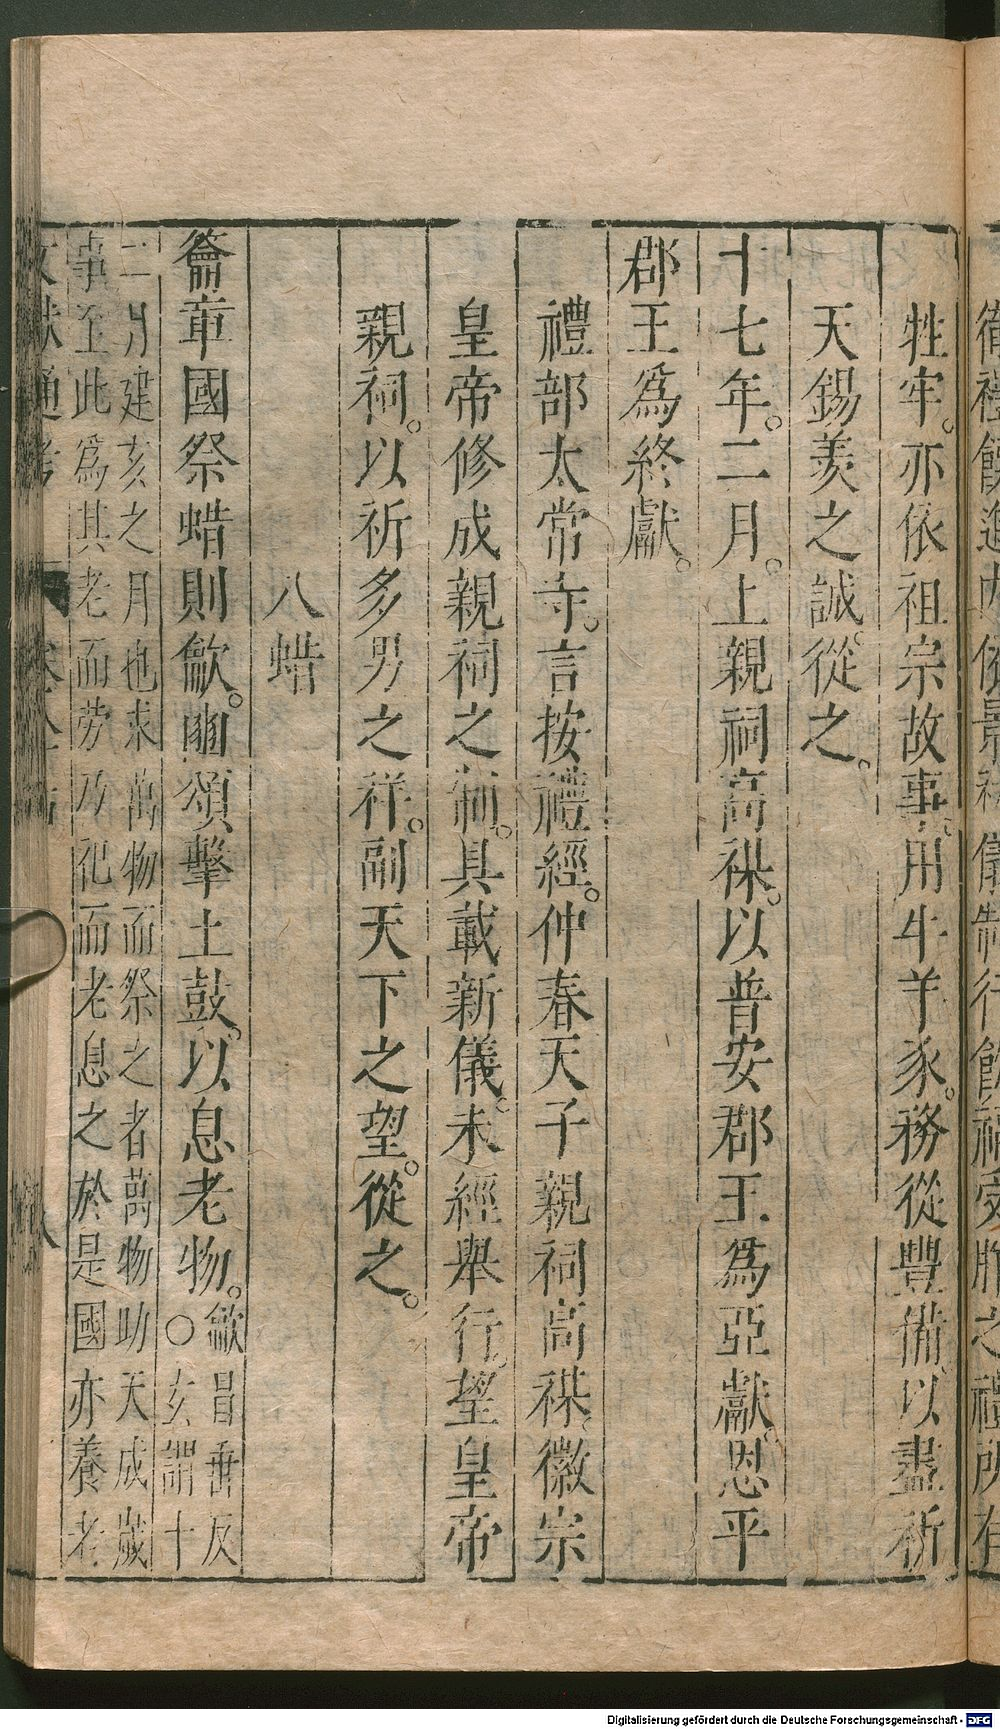 牲牢。亦依祖宗故事。用牛羊豕。務從豐備。以盡祈
天錫羨之誠。從之。
十七年。二月。上親祠高禖。以普安郡王爲亞獻。恩平
郡王爲終獻。
禮部太常寺。言按禮經。仲春天子親祠高禖。徽宗
皇帝修成親祠之制。具載新儀。未經舉行。望皇帝
親祠。以祈多男之祥。副天下之望。從之。
八蜡
籥章國祭蜡則龡。豳頌擊土鼓。以息老物。龡昌垂反
○玄謂十
二月建亥之月也求萬物而祭之者萬物助天成歲
事至此爲其老而勞乃祀而老息之於是國亦養老
文獻通考
八
Digitalisierung gefördert durch die Deutsche Forschungsgemeinschaft - DFG